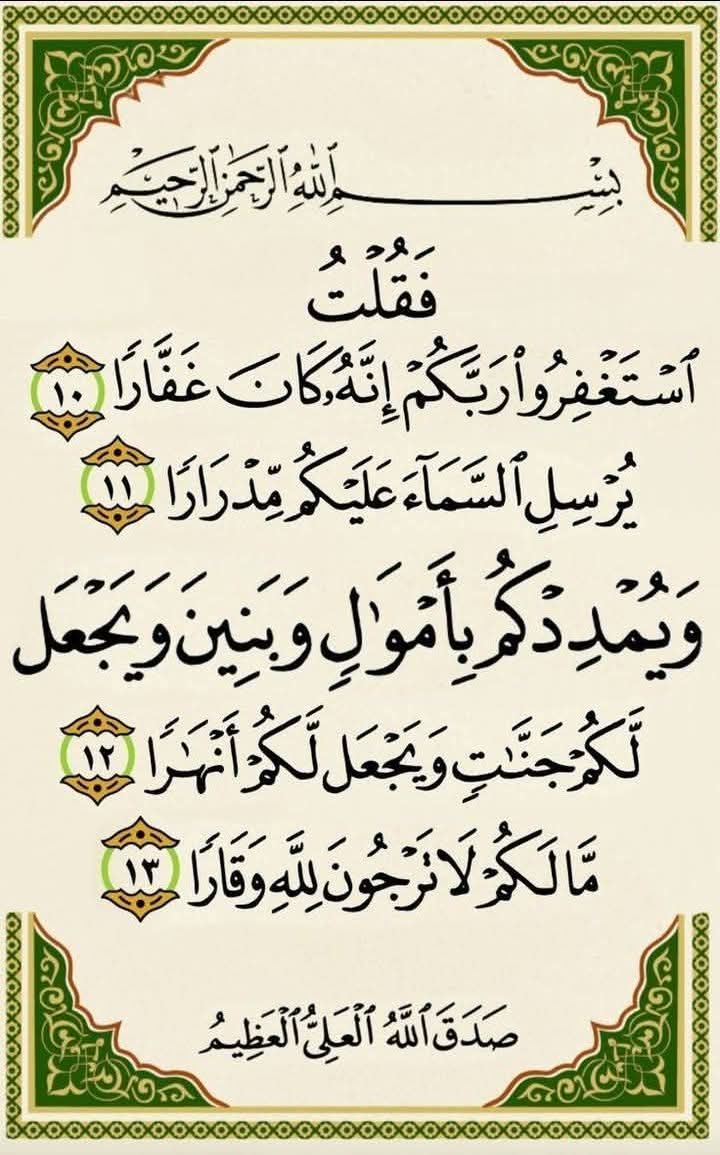 بِسْمِ ٱللَّهِ ٱلرَّحْمَٰنِ ٱلرَّحِيمِ
فَقُلْتُ
ٱسْتَغْفِرُوا۟ رَبَّكُمْ إِنَّهُۥ كَانَ غَفَّارًا ١٠
يُرْسِلِ ٱلسَّمَآءَ عَلَيْكُم مِّدْرَارًا ١١
وَيُمْدِدْكُم بِأَمْوَٰلٍ وَبَنِينَ وَيَجْعَل
لَّكُمْ جَنَّـٰتٍ وَيَجْعَل لَّكُمْ أَنْهَـٰرًا ١٢
مَّا لَكُمْ لَا تَرْجُونَ لِلَّهِ وَقَارًا ١٣
صَدَقَ ٱللَّهُ ٱلْعَلِىُّ ٱلْعَظِيمُ